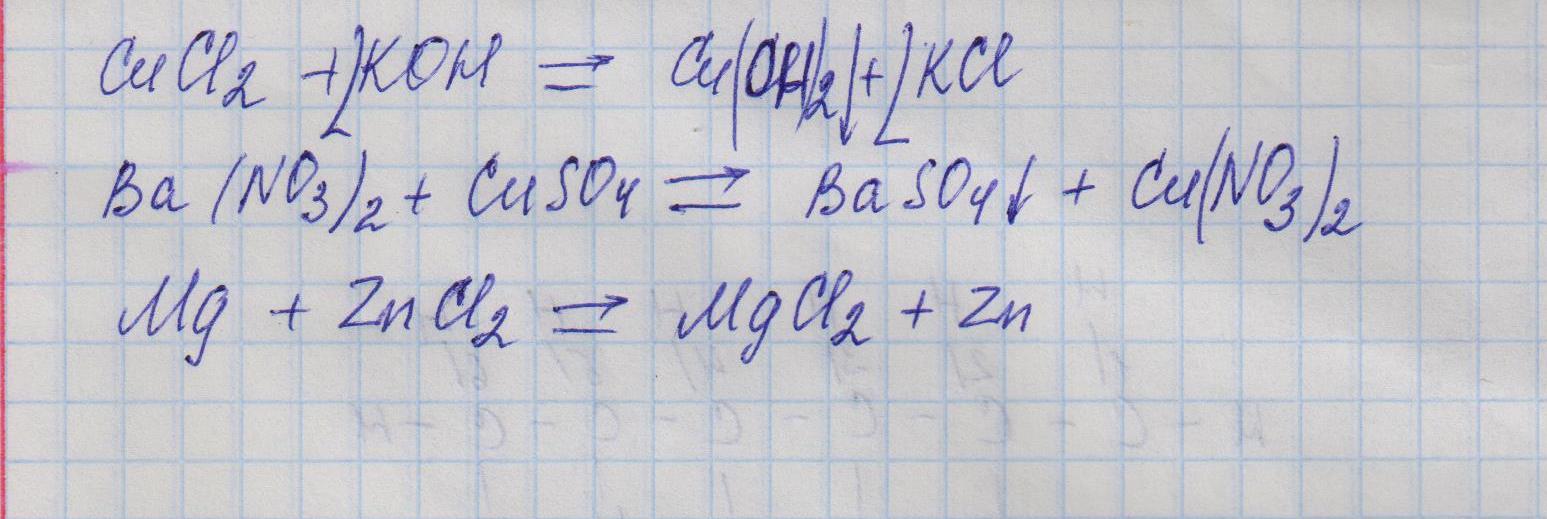 CuCl2 + 2KOH ⇒ Cu(OH)2↓ + 2KCl
Ba(NO3)2 + CuSO4 ⇒ BaSO4↓ + Cu(NO3)2
Mg + ZnCl2 ⇒ MgCl2 + Zn